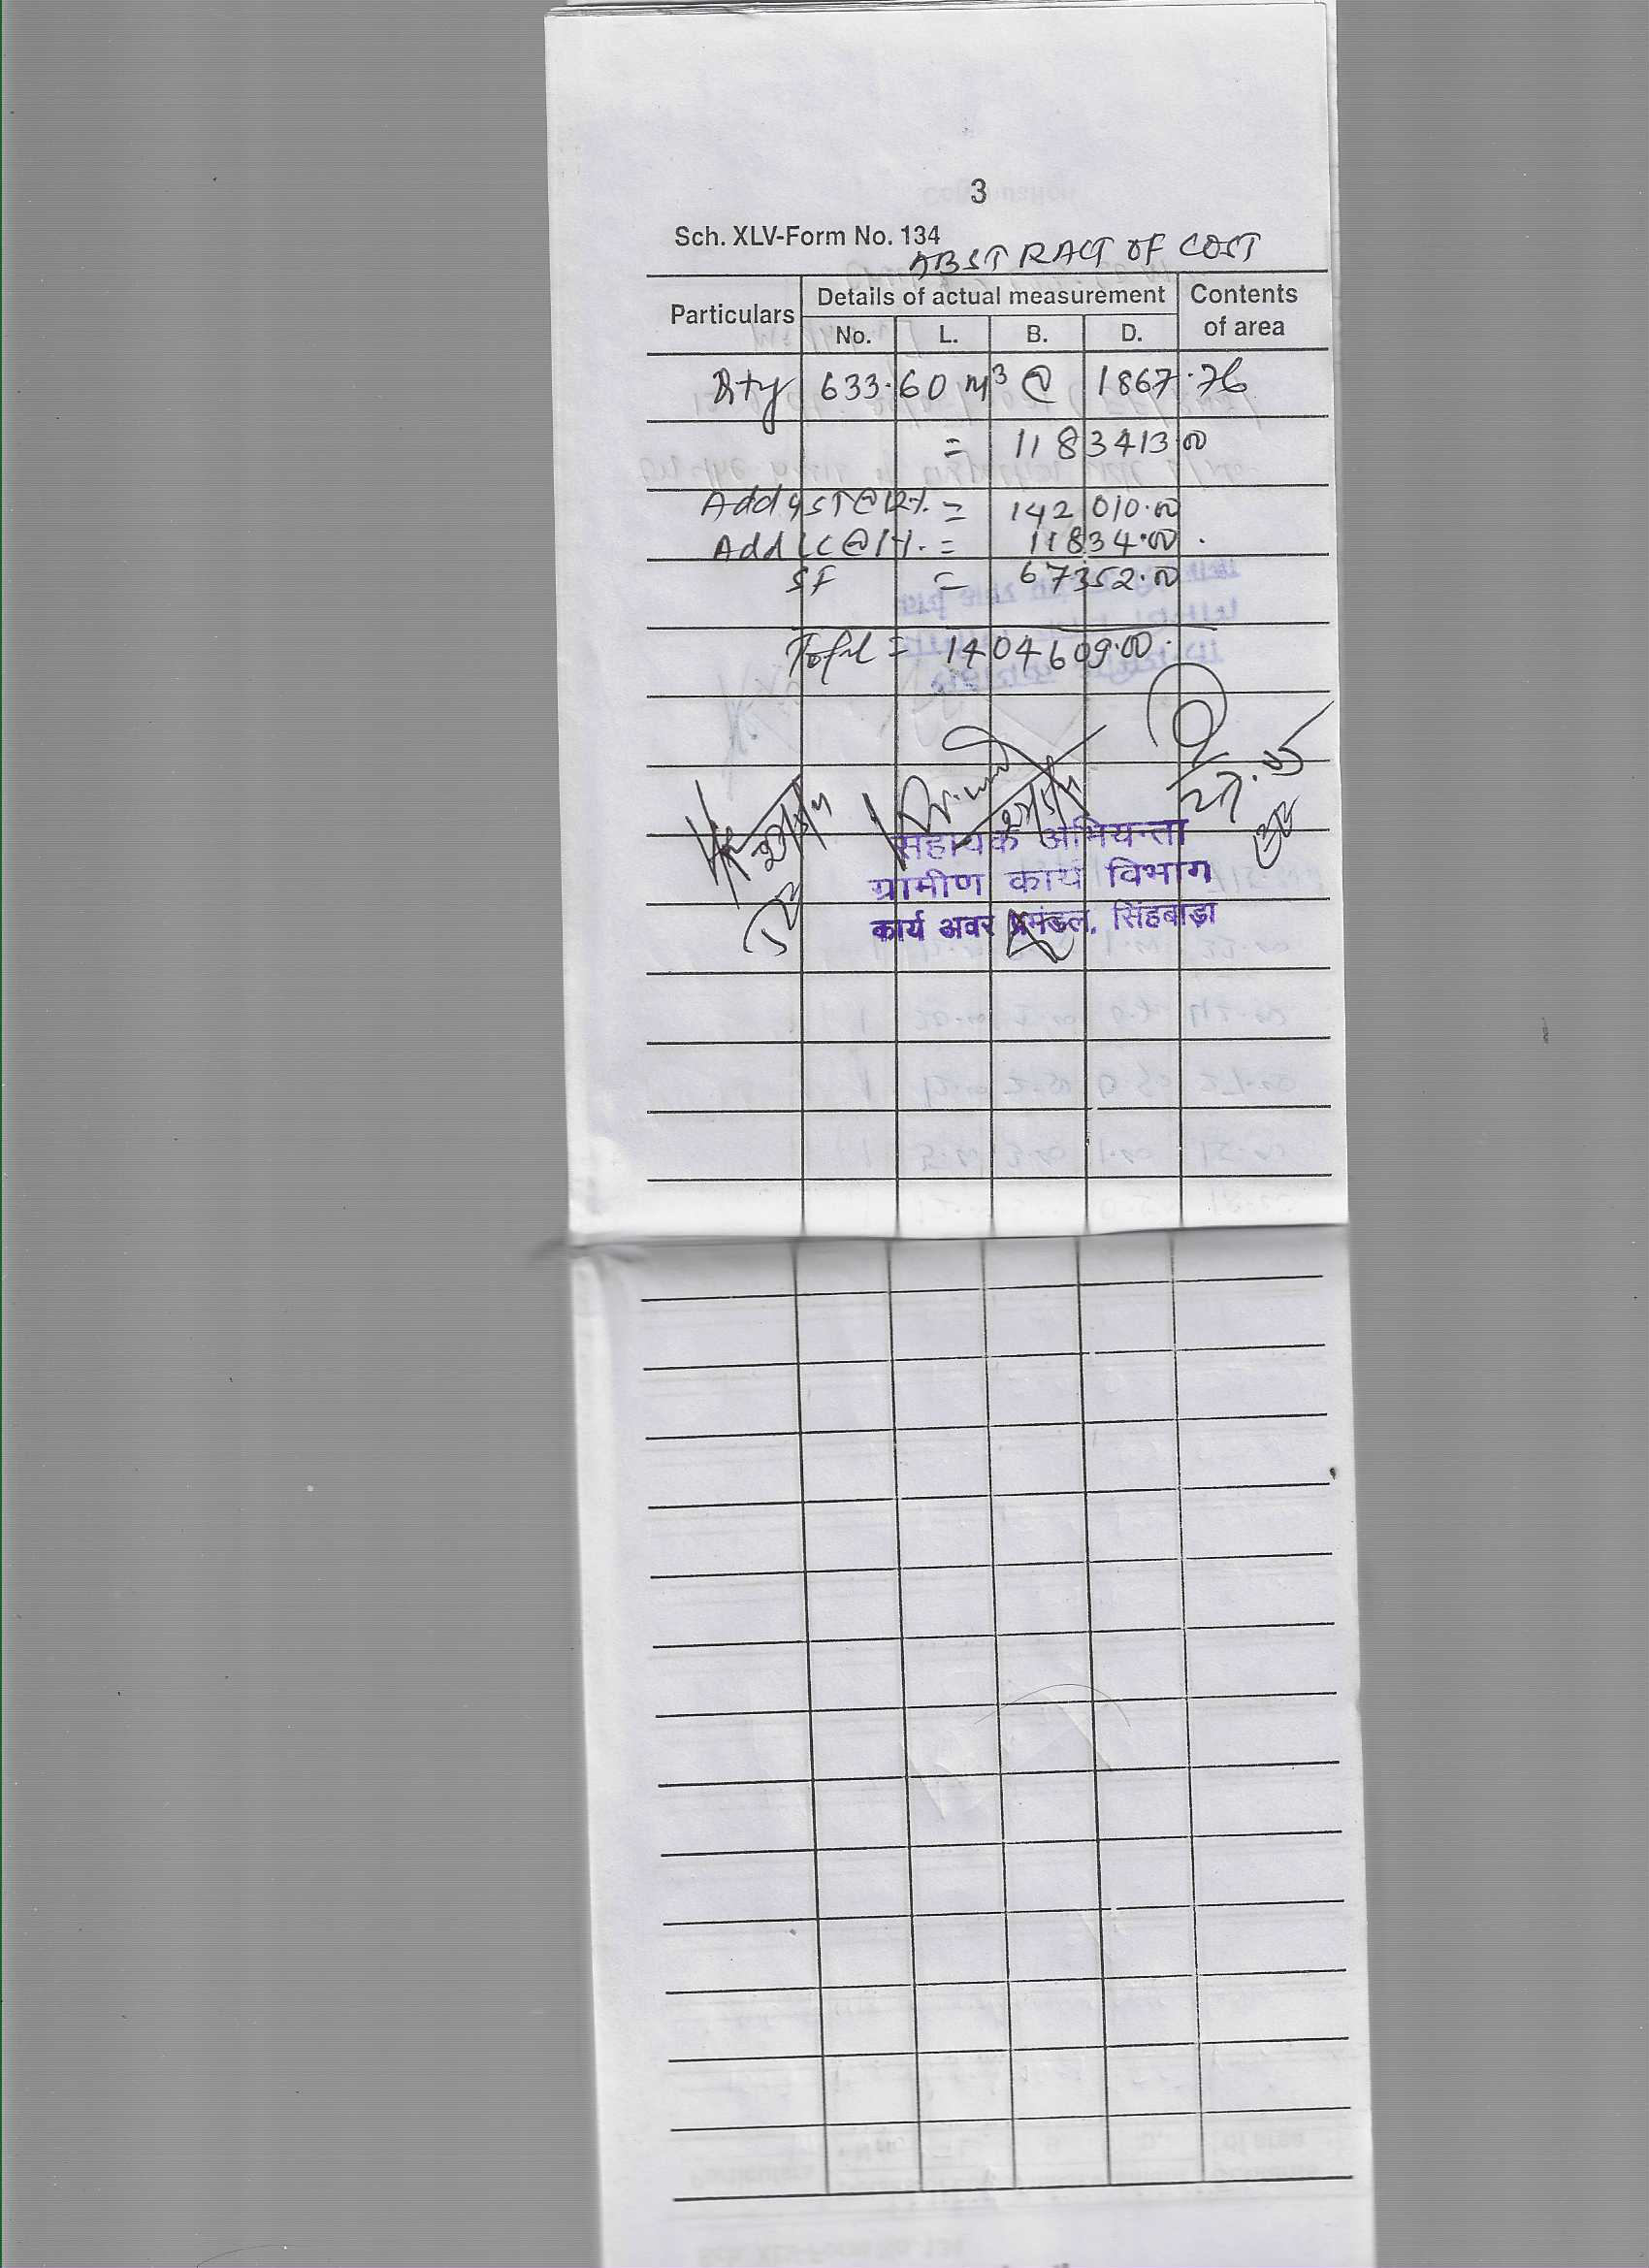 3
Sch. XLV-Form No. 134
ABSTRACT OF COST
Particulars Details of actual measurement Contents of area
No. L. B. D.
Qty 633.60 m³ @ 1867.76
= 1183413.00
Add GST @ 12%. = 142010.00
Add LC @ 1%. = 11834.00
SF = 67352.00
Total = 1404609.00
सहायक अभियन्ता
ग्रामीण कार्य विभाग
कार्य अवर प्रमंडल, सिंहबाड़ा